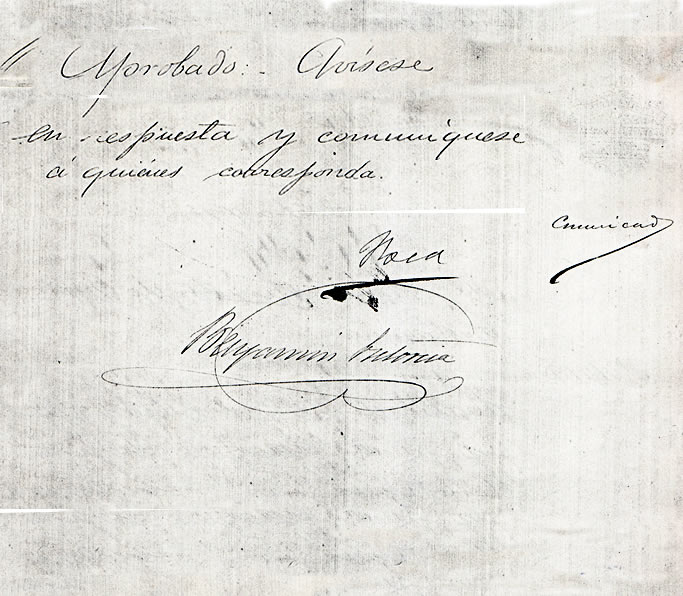 " Aprobado: - Avísese
en respuesta y comuníquese
á quiénes corresponda.
Comunicad
Roca
Benjamin Victorica